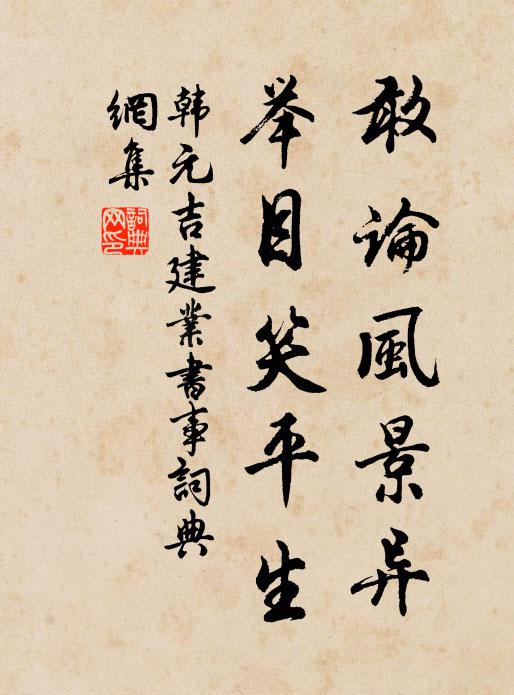 敢論風景异
举目笑平生
韩元吉建業書事詞典
網集
詞典
网印